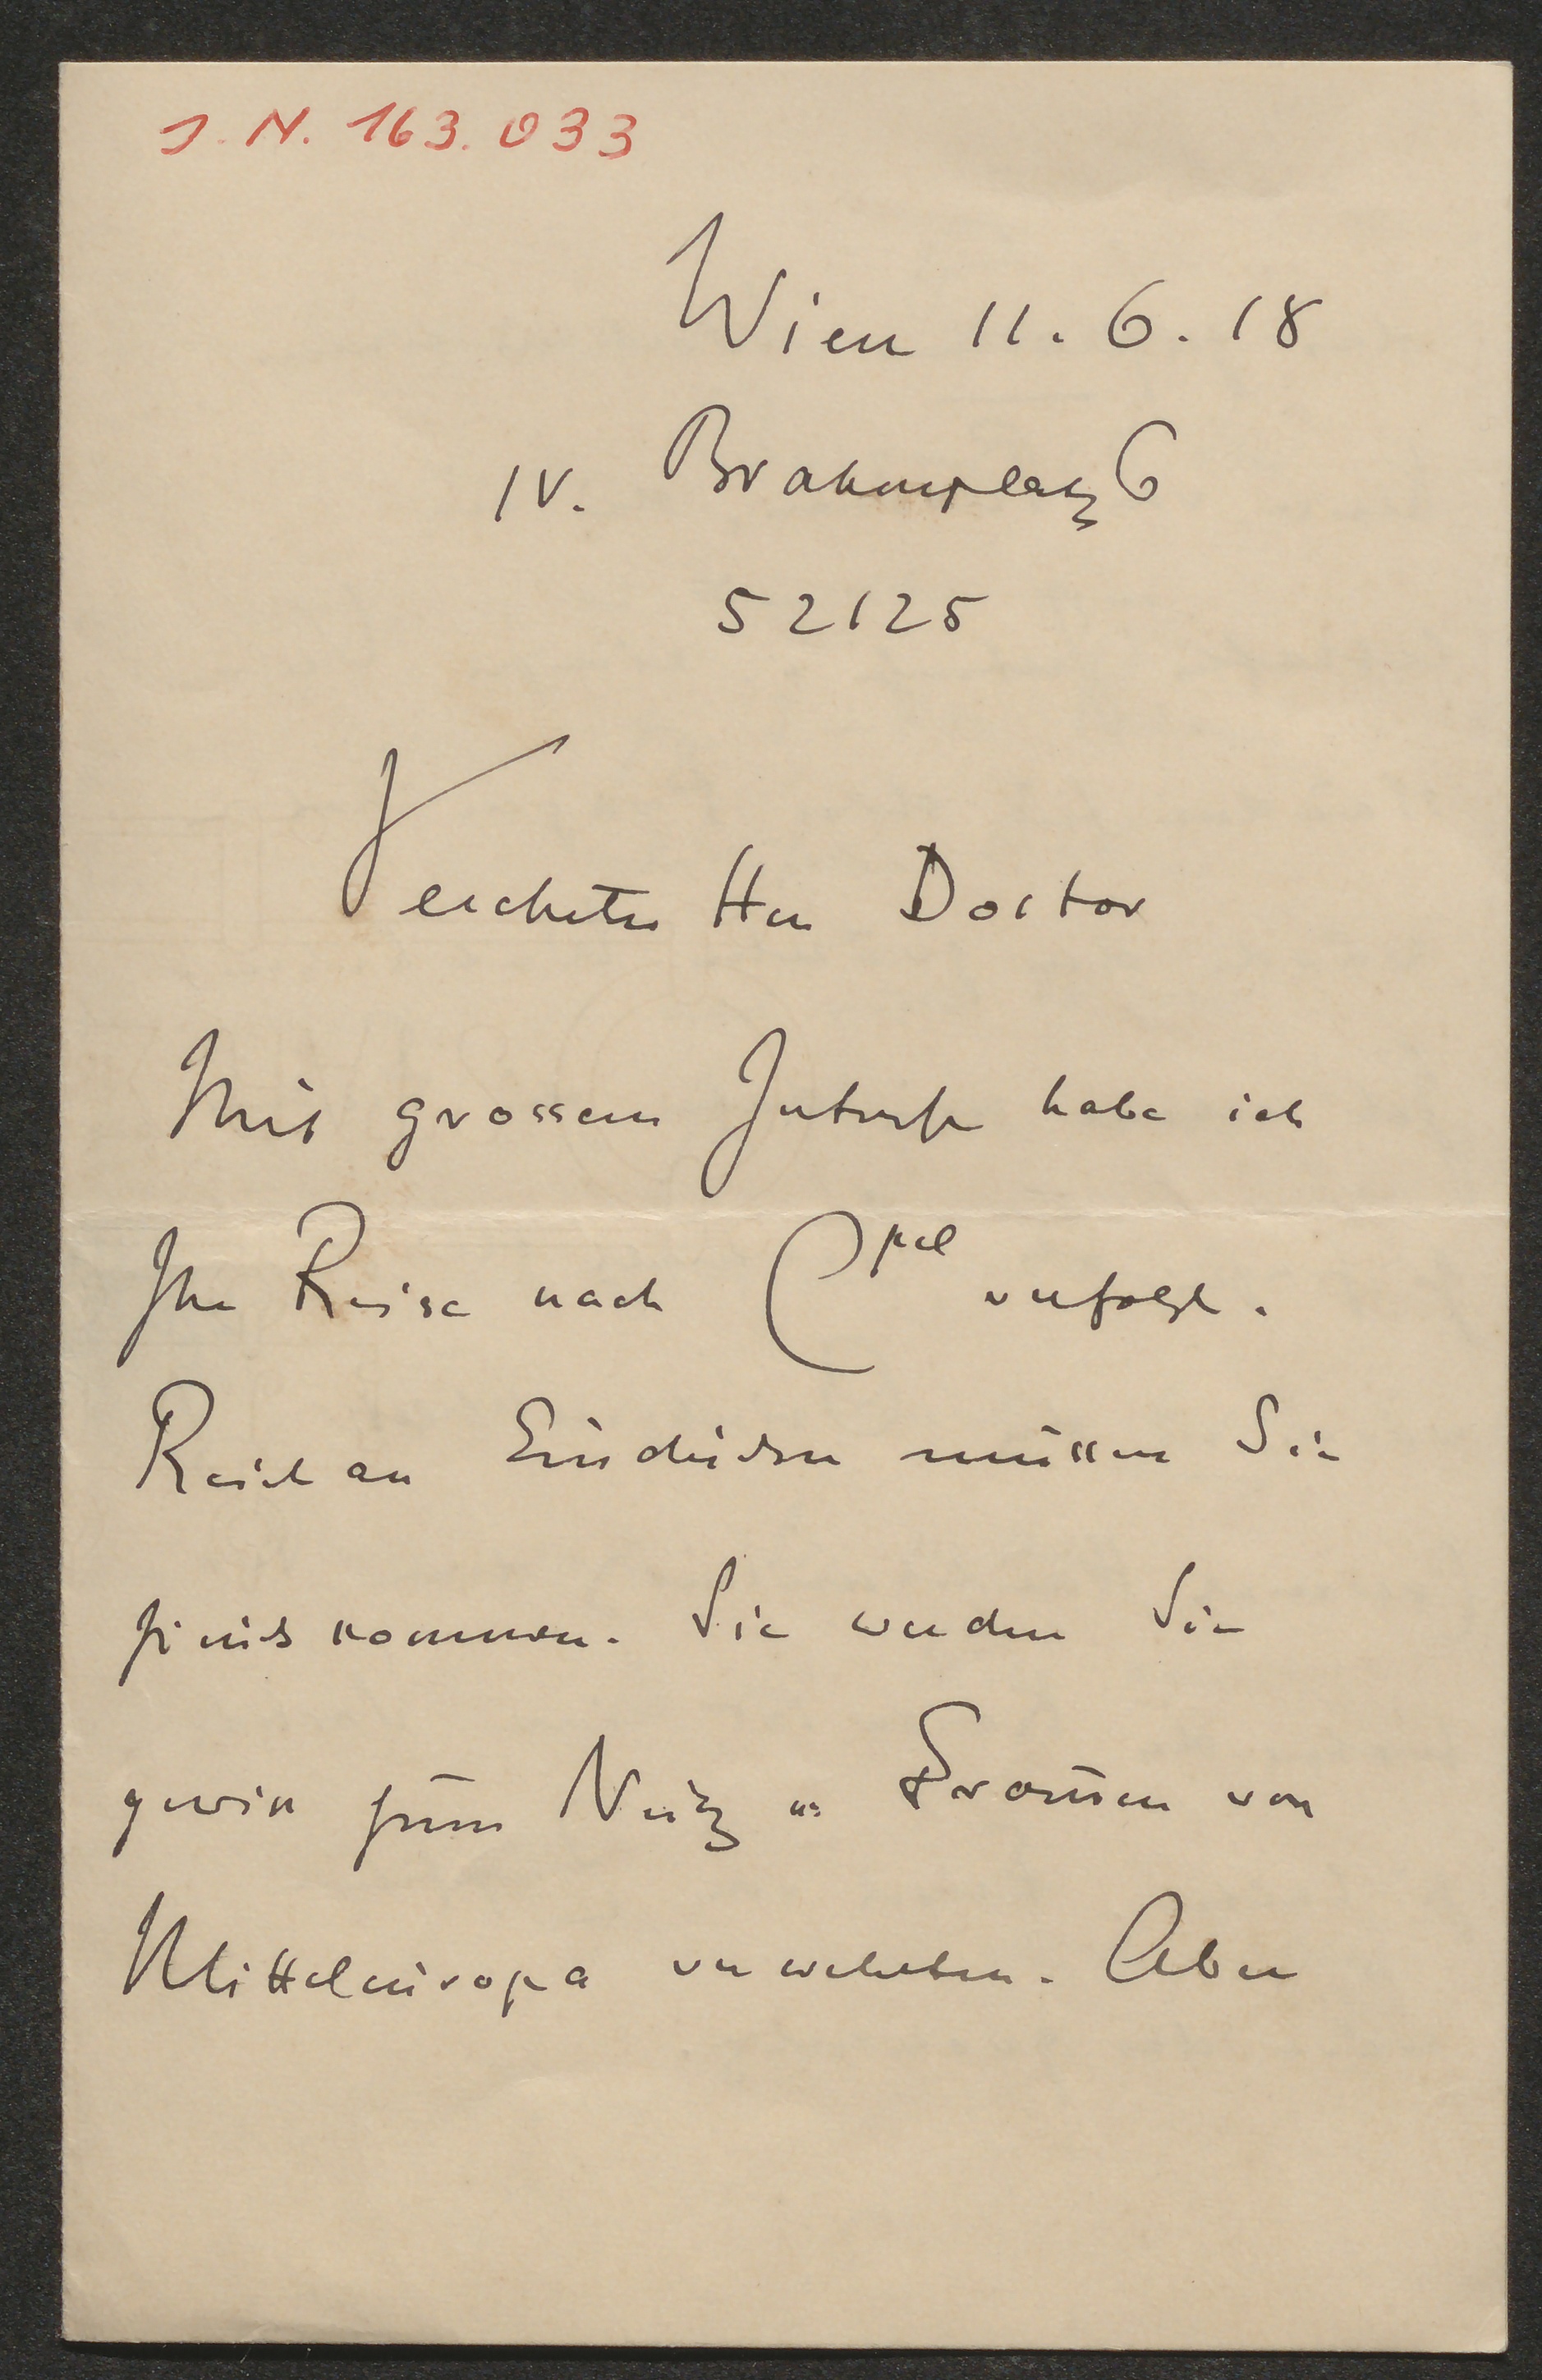 J. N. 163.033
Wien 11. 6. 18
IV. Brahmsplatz 6
52125
Verehrter Herr Doctor
Mit grossem Interesse habe ich
Ihre Reise nach Cpel verfolgt.
Reich an Eindrücken müssen Sie
zurückkommen. Sie werden Sie
gewiss zum Nutz u Frommen von
Mitteleuropa verwerten. Aber